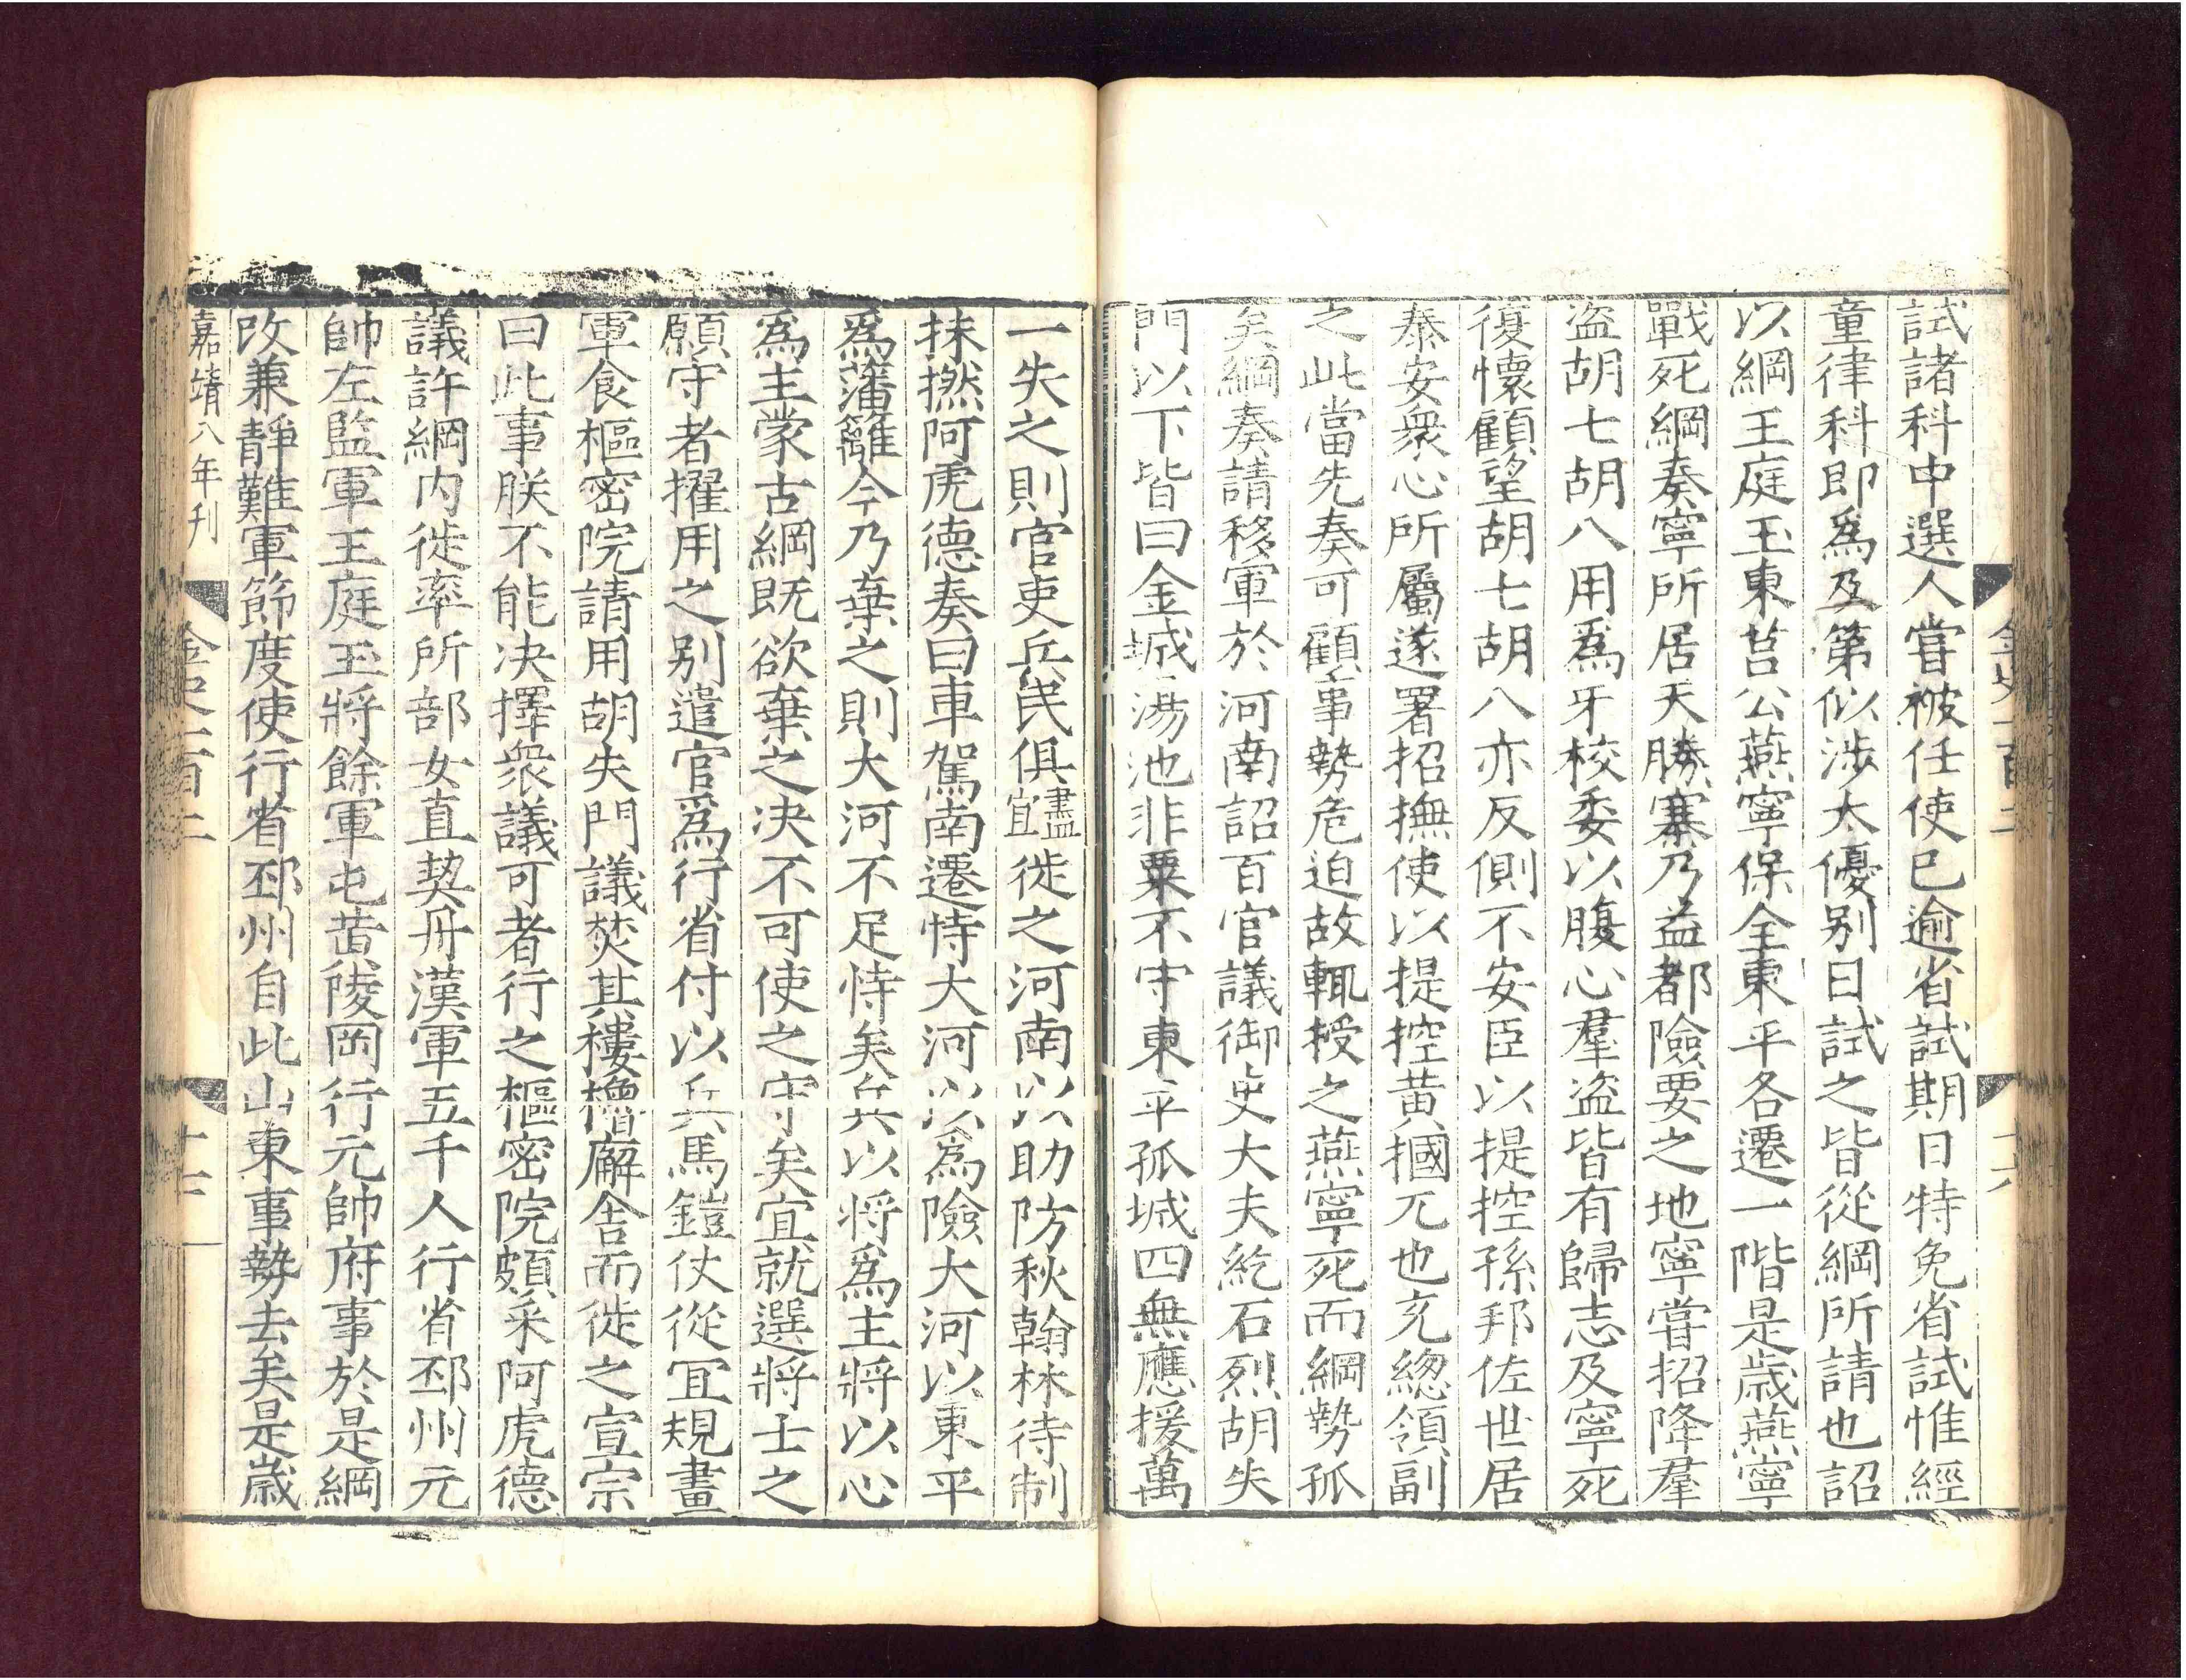 試諸科中選人嘗被任使已逾省試期日特免省試惟經
童律科即爲及第似涉太優别日試之皆從綱所請也詔
以綱王庭玉東莒公燕寧保全東平各遷一階是歳燕寧
戰死綱奏寧所居天勝寨乃益都險要之地寧嘗招降羣
盗胡七胡八用爲牙校委以腹心羣盗皆有歸志及寧死
復懷顧望胡七胡八亦反側不安臣以提控孫邦佐世居
泰安衆心所屬遂署招撫使以提控黄摑兀也充緫領副
之此當先奏可顧事勢危迫故輒授之燕寧死而綱勢孤
矣綱奏請移軍於河南詔百官議御史大夫紇石烈胡失
門以下皆曰金城湯池非粟不守東平孤城四無應援萬
金史一百二
十六
一失之則官吏兵民俱盡宜徙之河南以助防秋翰林待制
抹撚阿虎德奏曰車駕南遷恃大河以爲險大河以東平
爲藩籬今乃棄之則大河不足恃矣兵以将爲主將以心
爲主蒙古綱既欲棄之决不可使之守矣宜就選將士之
願守者擢用之别遣官爲行省付以兵馬鎧仗從宜規畫
軍食樞密院請用胡失門議焚其樓櫓廨舍而徙之宣宗
曰此事朕不能决擇衆議可者行之樞密院頗采阿虎德
議許綱内徙率所部女直契丹漢軍五千人行省邳州元
帥左監軍王庭玉將餘軍屯黄陵岡行元帥府事於是綱
改兼靜難軍節度使行省邳州自此山東事勢去矣是歳
嘉靖八年刊
金史一百二
十七